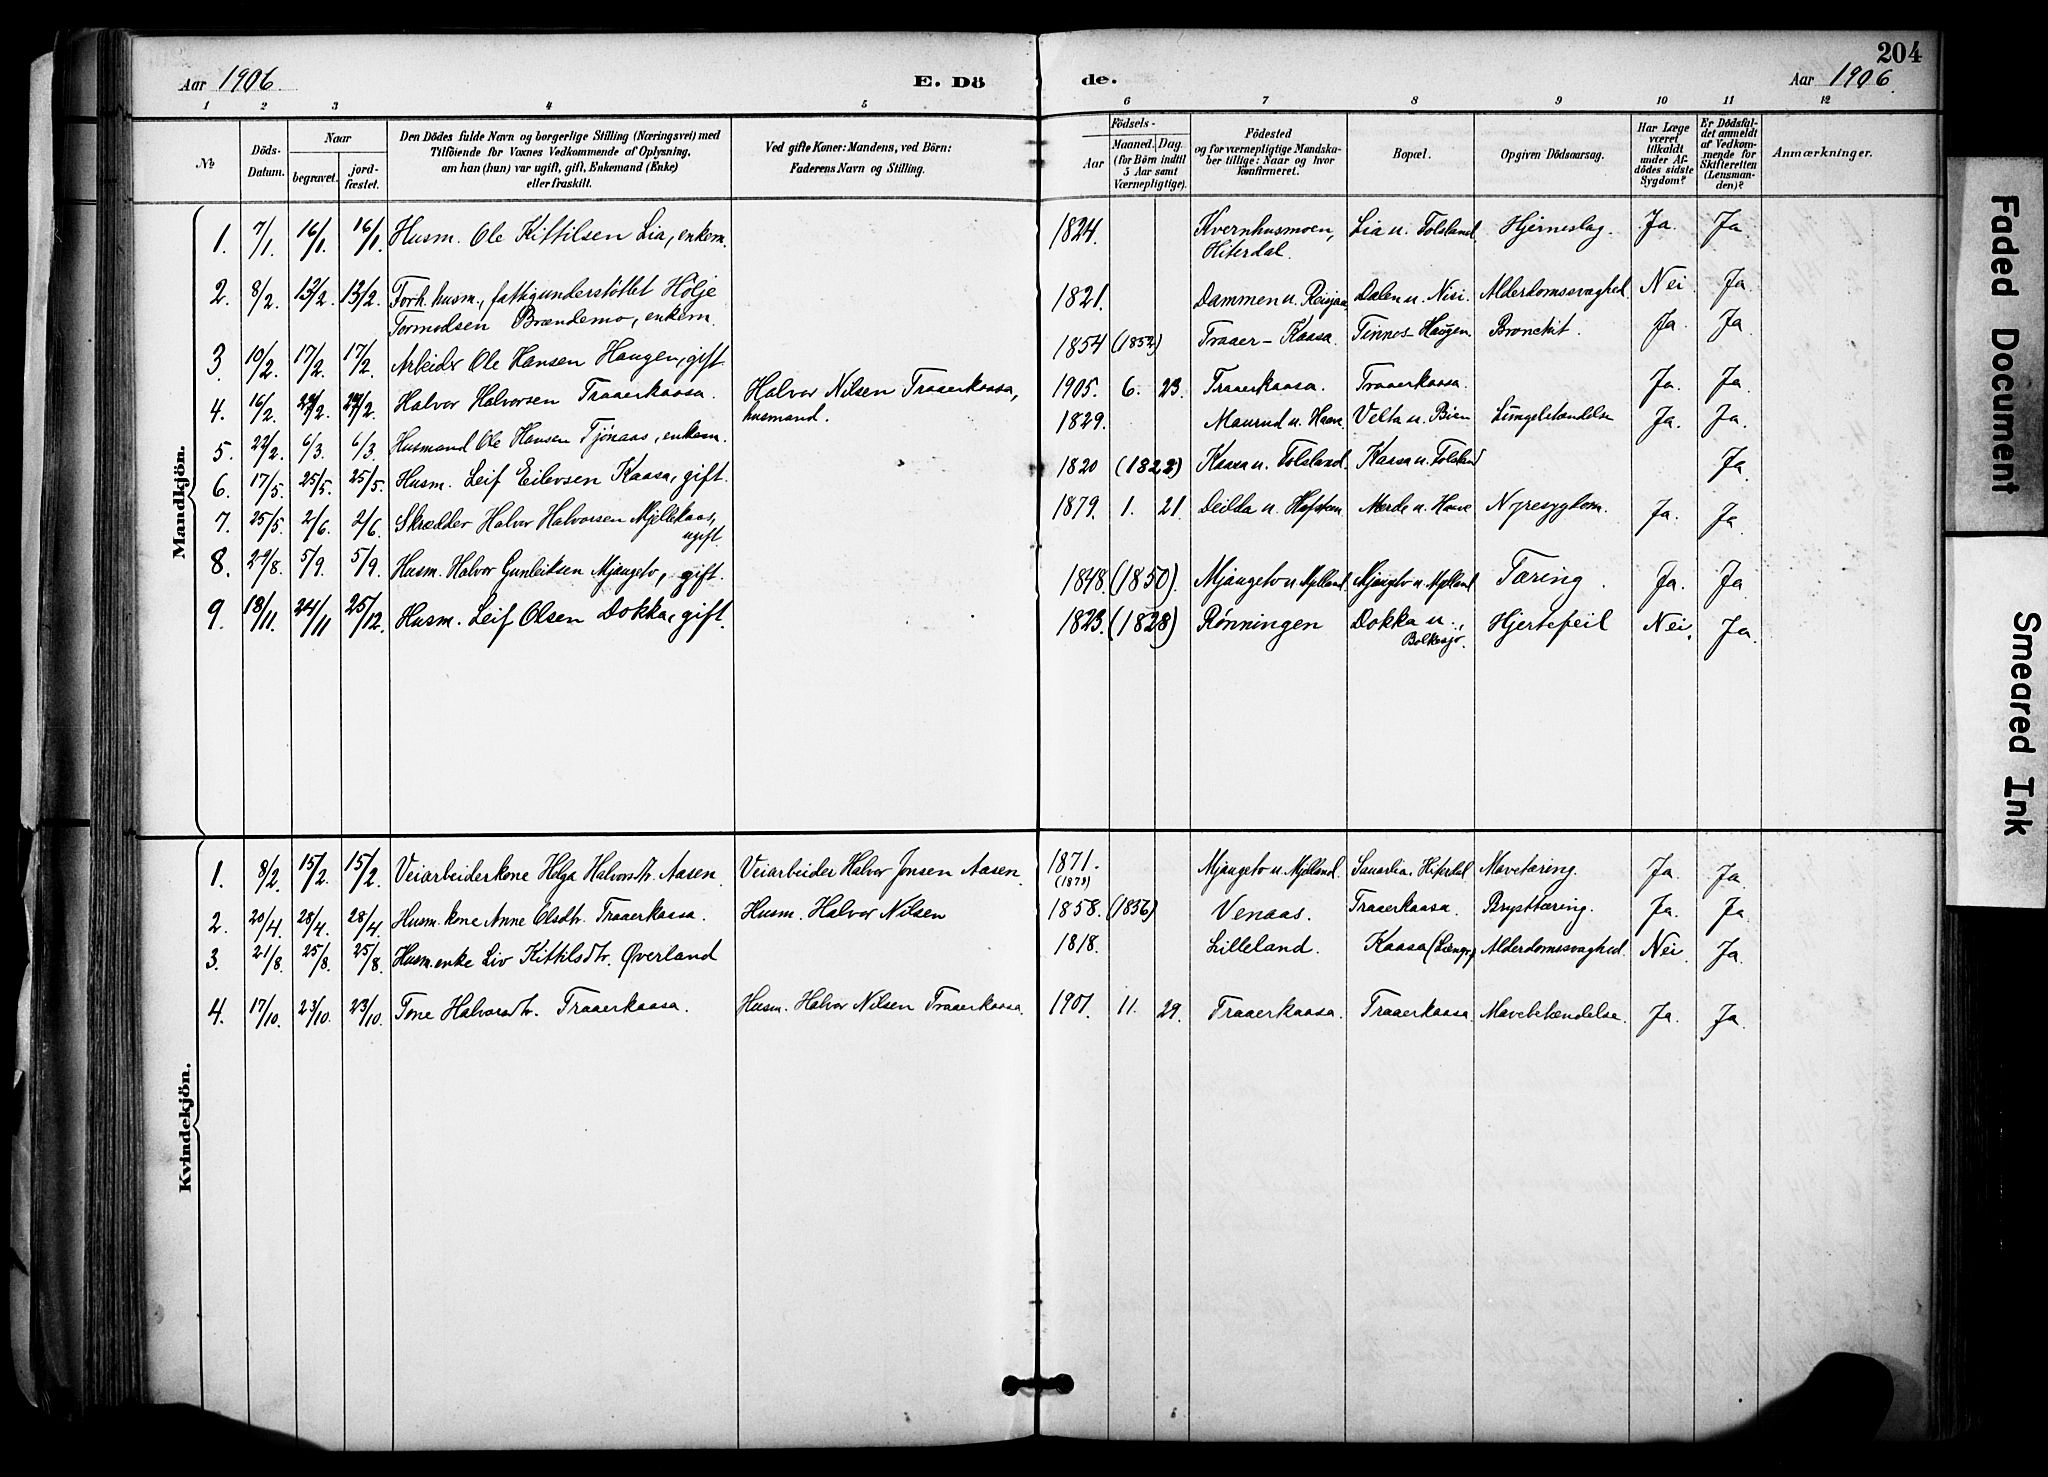 204
Aar 1906.
E. Dö
de.
Aar 1906.
1 2 3 4 5 6 7 8 9 10 11 12
№
Döds-
Datum.
Naar
begravet.
jord-
fæstet.
Den Dödes fulde Navn og borgerlige Stilling (Næringsvei) med
Tilföiende for Voxnes Vedkommende af Oplysning,
om han (hun) var ugift, gift, Enkemand (Enke)
eller fraskilt.
Ved gifte Koner: Mandens, ved Börn:
Faderens Navn og Stilling.
Födsels-
Aar
Maaned. Dag.
(for Börn indtil
5 Aar samt
Værnepligtige).
Födested
og for værnepligtige Mandska-
ber tillige: Naar og hvor
konfirmeret.
Bopæl.
Opgiven Dödsaarsag.
Har Læge
været
tilkaldt
under Af-
dödes sidste
Sygdom?
Er Dödsfal-
det anmeldt
af Vedkom-
mende for
Skifteretten
(Lensman-
den)?
Anmærkninger.
Mandkjön.
1. 7/1. 16/1. 16/1. Husm. Ole Kittilsen Lia, enkem. 1824. Kvernhusmoen, Lia u. Folsland. Hjerneslag. Ja. Ja.
Hiterdal.
2. 8/2. 13/2. 13/2. Forh. husm., fattigunderstöttet Hölje 1821. Dammen u. Reisjaa. Dalen u. Nisi. Alderdomssvaghed. Nei Ja.
Tormodsen Brændemo, enkem.
3. 10/2. 17/2. 17/2. Arbeider Ole Hansen Haugen, gift. 1854 (1852) Traaer-Kaasa. Tinnes Haugen. Bronchit. Ja. Ja.
4. 16/2. 24/2. 24/2. Halvor Halvorsen Traaerkaasa. Halvor Nilsen Traaerkaasa, 1905. 6. 23. Traaerkaasa. Traaerkaasa. Ja. Ja.
husmand.
5. 22/2. 6/3. 6/3. Husmand Ole Hansen Tjönaas, enkem. 1829. Maurud u. Haave. Velta u. Bian Lungebetændelse Ja. Ja.
6. 17/5. 25/5. 25/5. Husm. Leif Eilevsen Kaasa, gift. 1820 (1822) Kaasa u. Folsland. Kaasa u. Folsland Ja.
7. 25/5. 2/6. 2/6. Skrædder Halvor Halvorsen Mjellekaas, 1879. 1. 21. Deilda u. Hofstun Merde u. Hove Nyresygdom. Ja. Ja.
ugift.
8. 29/8. 5/9. 5/9. Husm. Halvor Gunleiksen Mjaugeto, gift. 1848. (1850). Mjaugeto u. Mælland. Mjaugeto u. Mælland Tæring. Ja. Ja.
9. 18/11. 24/11 25/12. Husm. Leif Olsen Dokka, gift. 1823. (1828) Rønningen Dokka u. Hjertefeil Nei. Ja.
Bolkesjø.
Kvindekjön.
1. 8/2. 15/2. 15/2. Veiarbeiderkone Helga Halvorsdtr. Aasen. Veiarbeider Halvor Jonsen Aasen. 1871. Mjaugeto u. Mælland. Sauarlia, Hiterdal Mavetæring. Ja. Ja.
(1873)
2. 20/4. 28/4. 28/4. Husm.kone Anne Olsdtr. Traaerkaasa. Husm. Halvor Nilsen 1858. (1856) Venaas. Traaerkaasa. Brysttæring. Ja. Ja.
3. 21/8. 25/8. 25/8. Husm.enke Liv Kittilsdtr. Øverland 1818. Lilleland. Kaasa Alderdomssvaghed. Nei. Ja.
4. 17/10. 23/10. 23/10. Tone Halvorsdtr. Traaerkaasa. Husm. Halvor Nilsen Traaerkaasa. 1901. 11. 29. Traaerkaasa. Traaerkaasa. Mavebetændelse. Ja. Ja.
Faded Document
Smeared Ink